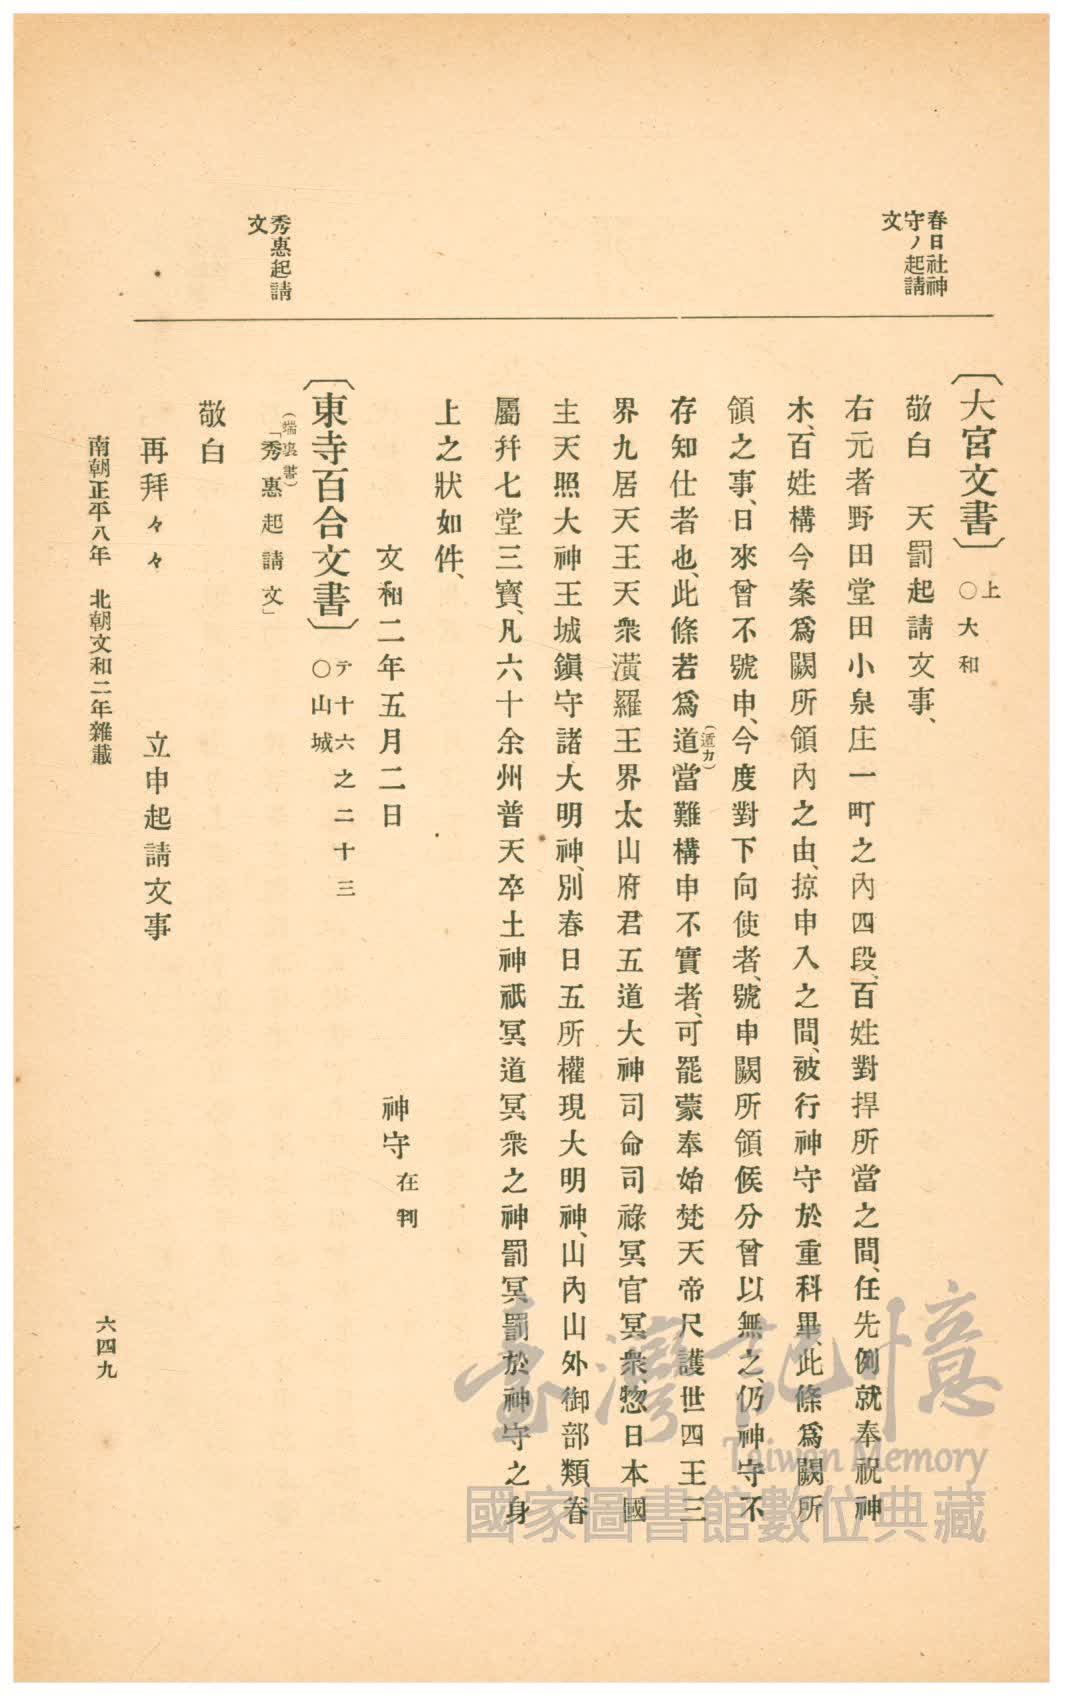 春日社神
守ノ起請
文
〔大宮文書〕上○大和
敬白　天罰起請文事、
右元者野田堂田小泉庄一町之內四段、百姓對捍所當之間、任先例就奉祝神
木、百姓構今案爲闕所領內之由、掠申入之間、被行神守於重科畢、此條爲闕所
領之事、日來曾不號申、今度對下向使者、號申闕所領候分曾以無之、仍神守不
存知仕者也、此條若爲道(遁カ)當難構申不實者、可罷蒙奉始梵天帝尺護世四王三
界九居天王天衆潢羅王界太山府君五道大神司命司祿冥官冥衆、惣日本國
主天照大神王城鎭守諸大明神、別春日五所權現大明神、山內山外御部類眷
屬幷七堂三寶、凡六十余州普天卒土神祇冥道冥衆之神罰冥罰於神守之身
上之狀如件、
文和二年五月二日
神守在判
秀惠起請
文
〔東寺百合文書〕テ十六之二十三○山城
(端裏書)
「秀惠起請文」
敬白
再拜々々　立申起請文事
南朝正平八年　北朝文和二年雜載
六四九
臺灣記憶
Taiwan Memory
國家圖書館數位典藏